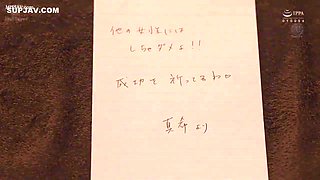 SUPJAV.COM
IPPA
他の女性には
しちゃダメよ!!
成功を祈ってるわ
真希より